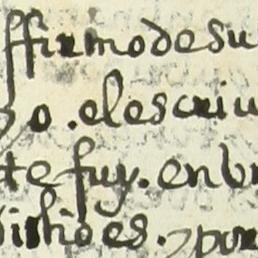 ffirmo de su
o. el escriu
te fuy. en br
es. por